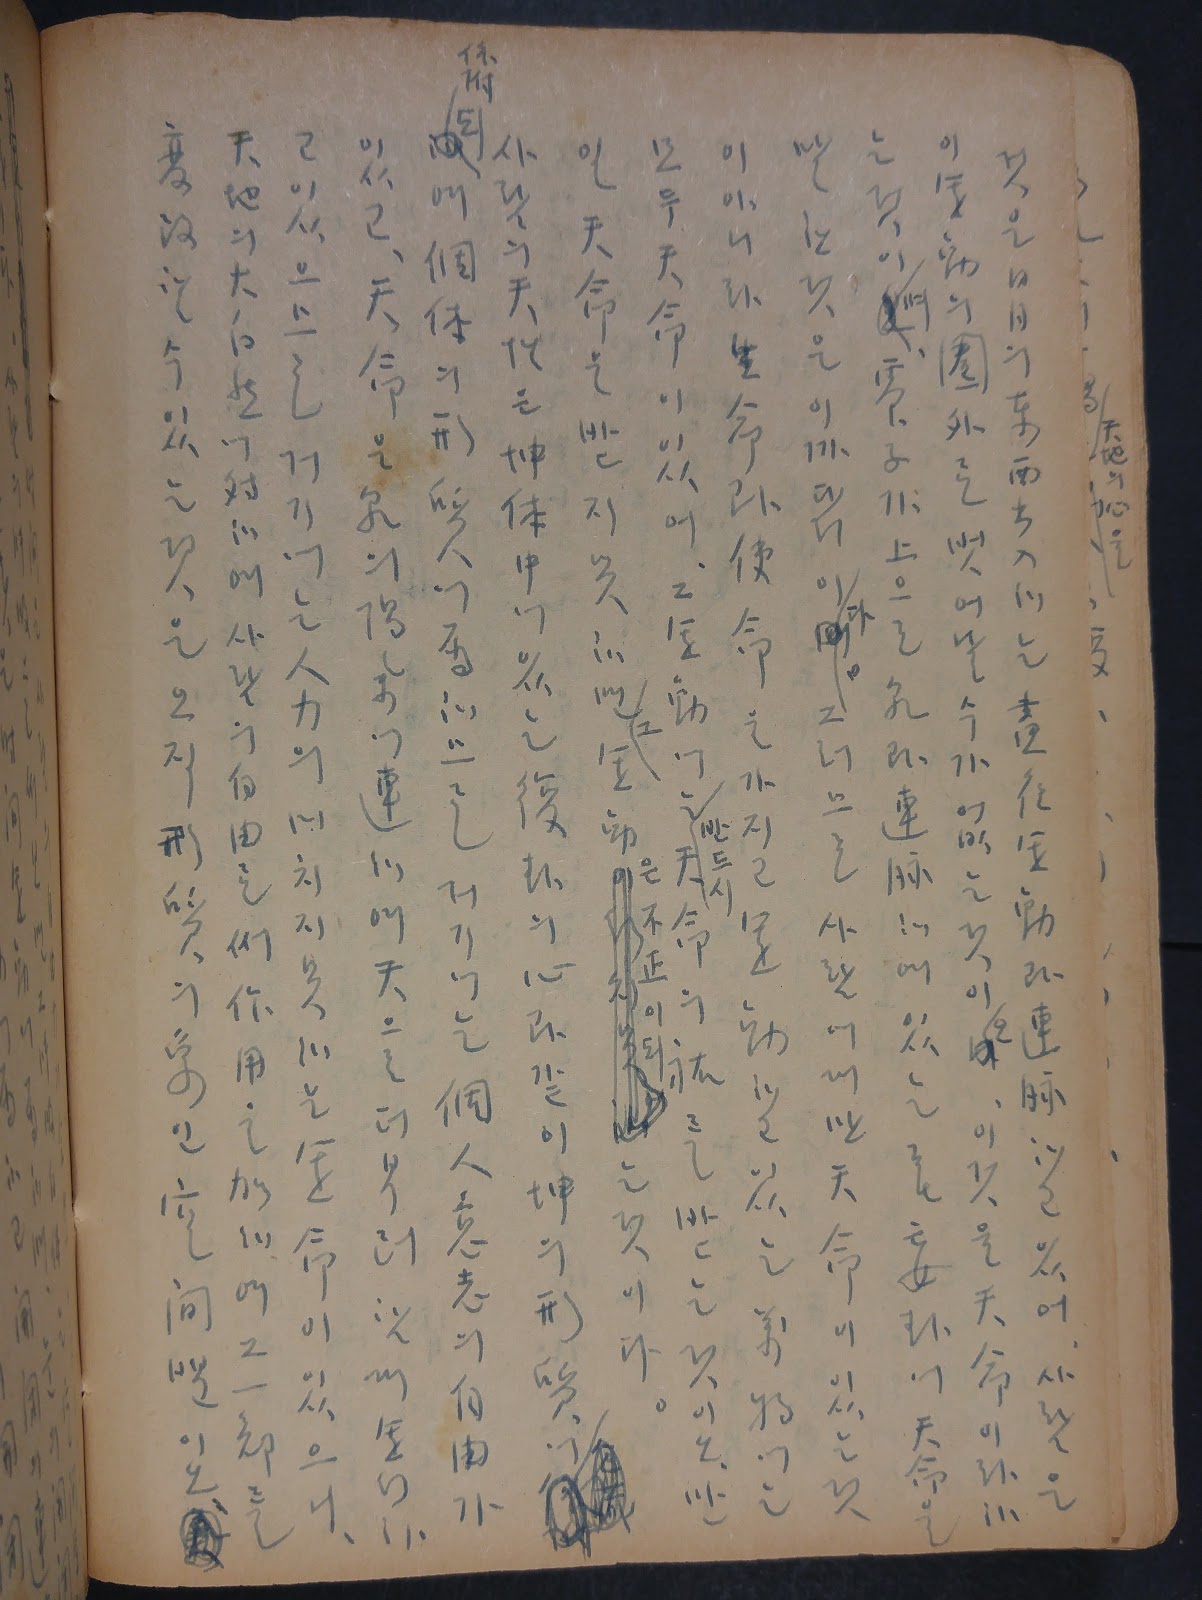 것은 日月의 東西出入하는 晝夜運動과 連脉하고 있어, 사람은
이 運動의 圈外로 벗어날 수가 없는 것이오, 이것을 天命이라 하
는 것이며, 震子가 上으로 乾과 連脉하여 있는 无妄卦에 天命을
말한 것은 이 까닭이다。 그러므로 사람에게만 天命이 있는 것
이 아니라 生命과 使命을 가지고 運動하고 있는 萬物에는
모두 天命이 있어, 그 運動에는 반드시 天命의 祐를 받는 것이오, 만
일 天命을 받지 못하면 그 運動은 不正이 되는 것이다。
사람의 天性은 坤体中에 있는 復卦의 心과 같이 坤의 形質에
依附되 個体의 形質에 局하므로 저기에는 個人意志의 自由가
있고, 天命은 乾의 陽氣에 連하여 天으로 더부러 함께 運行하
고 있으므로 거기에는 人力의 미치지 못하는 運命이 있으니,
天地의 大自然에 對하여 사람의 自由로 術作用을 加하여 그 一部를
變改할 수 있는 것은 오직 形質의 象인 空間뿐이오
天地의 心을